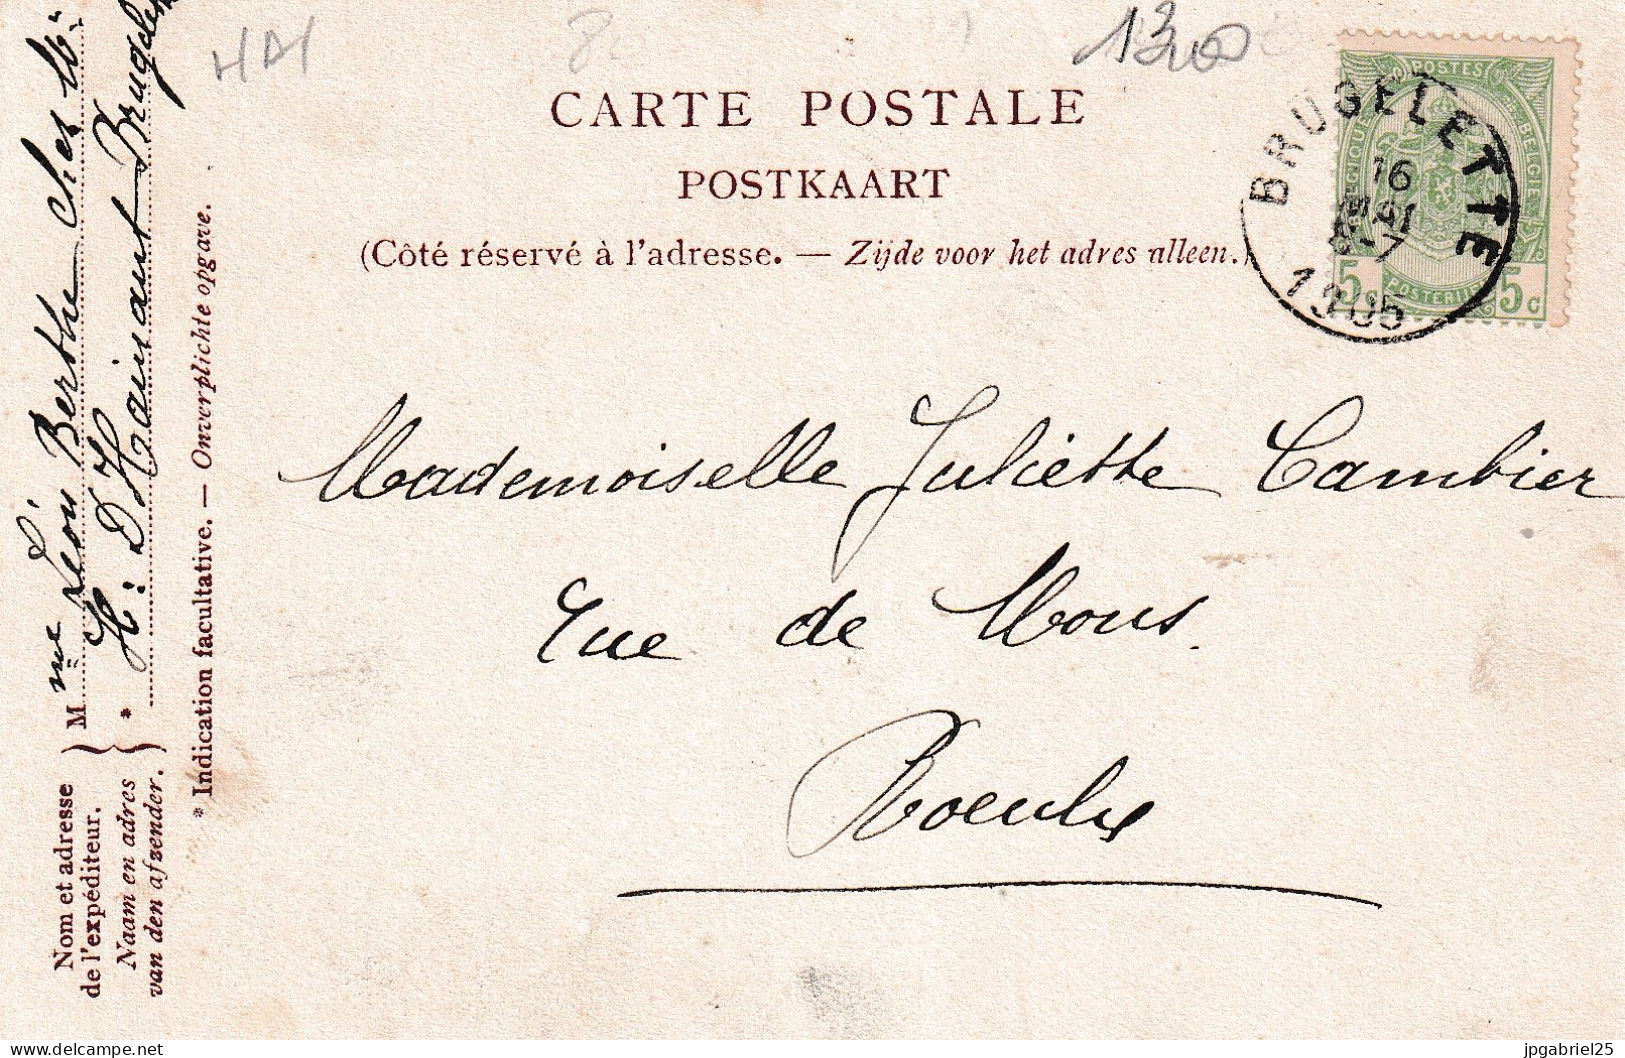 1300
CARTE POSTALE
POSTKAART
(Côté réservé à l'adresse. — Zijde voor het adres alleen.)
POSTES
BELGIQUE
BELGIE
POSTERIJEN
5c 5c
BRUGELETTE
16
MAI
6-7
1905
Mademoiselle Juliette Cambier
Rue de Mons.
Roeulx
Nom et adresse
de l'expéditeur.
Naam en adres
van den afzender.
Mme Léon Berthe chez Mr
* H: D'Hainaut Brugelette
* Indication facultative. — Onverplichte opgave.
delcampe.net
jpgabriel25